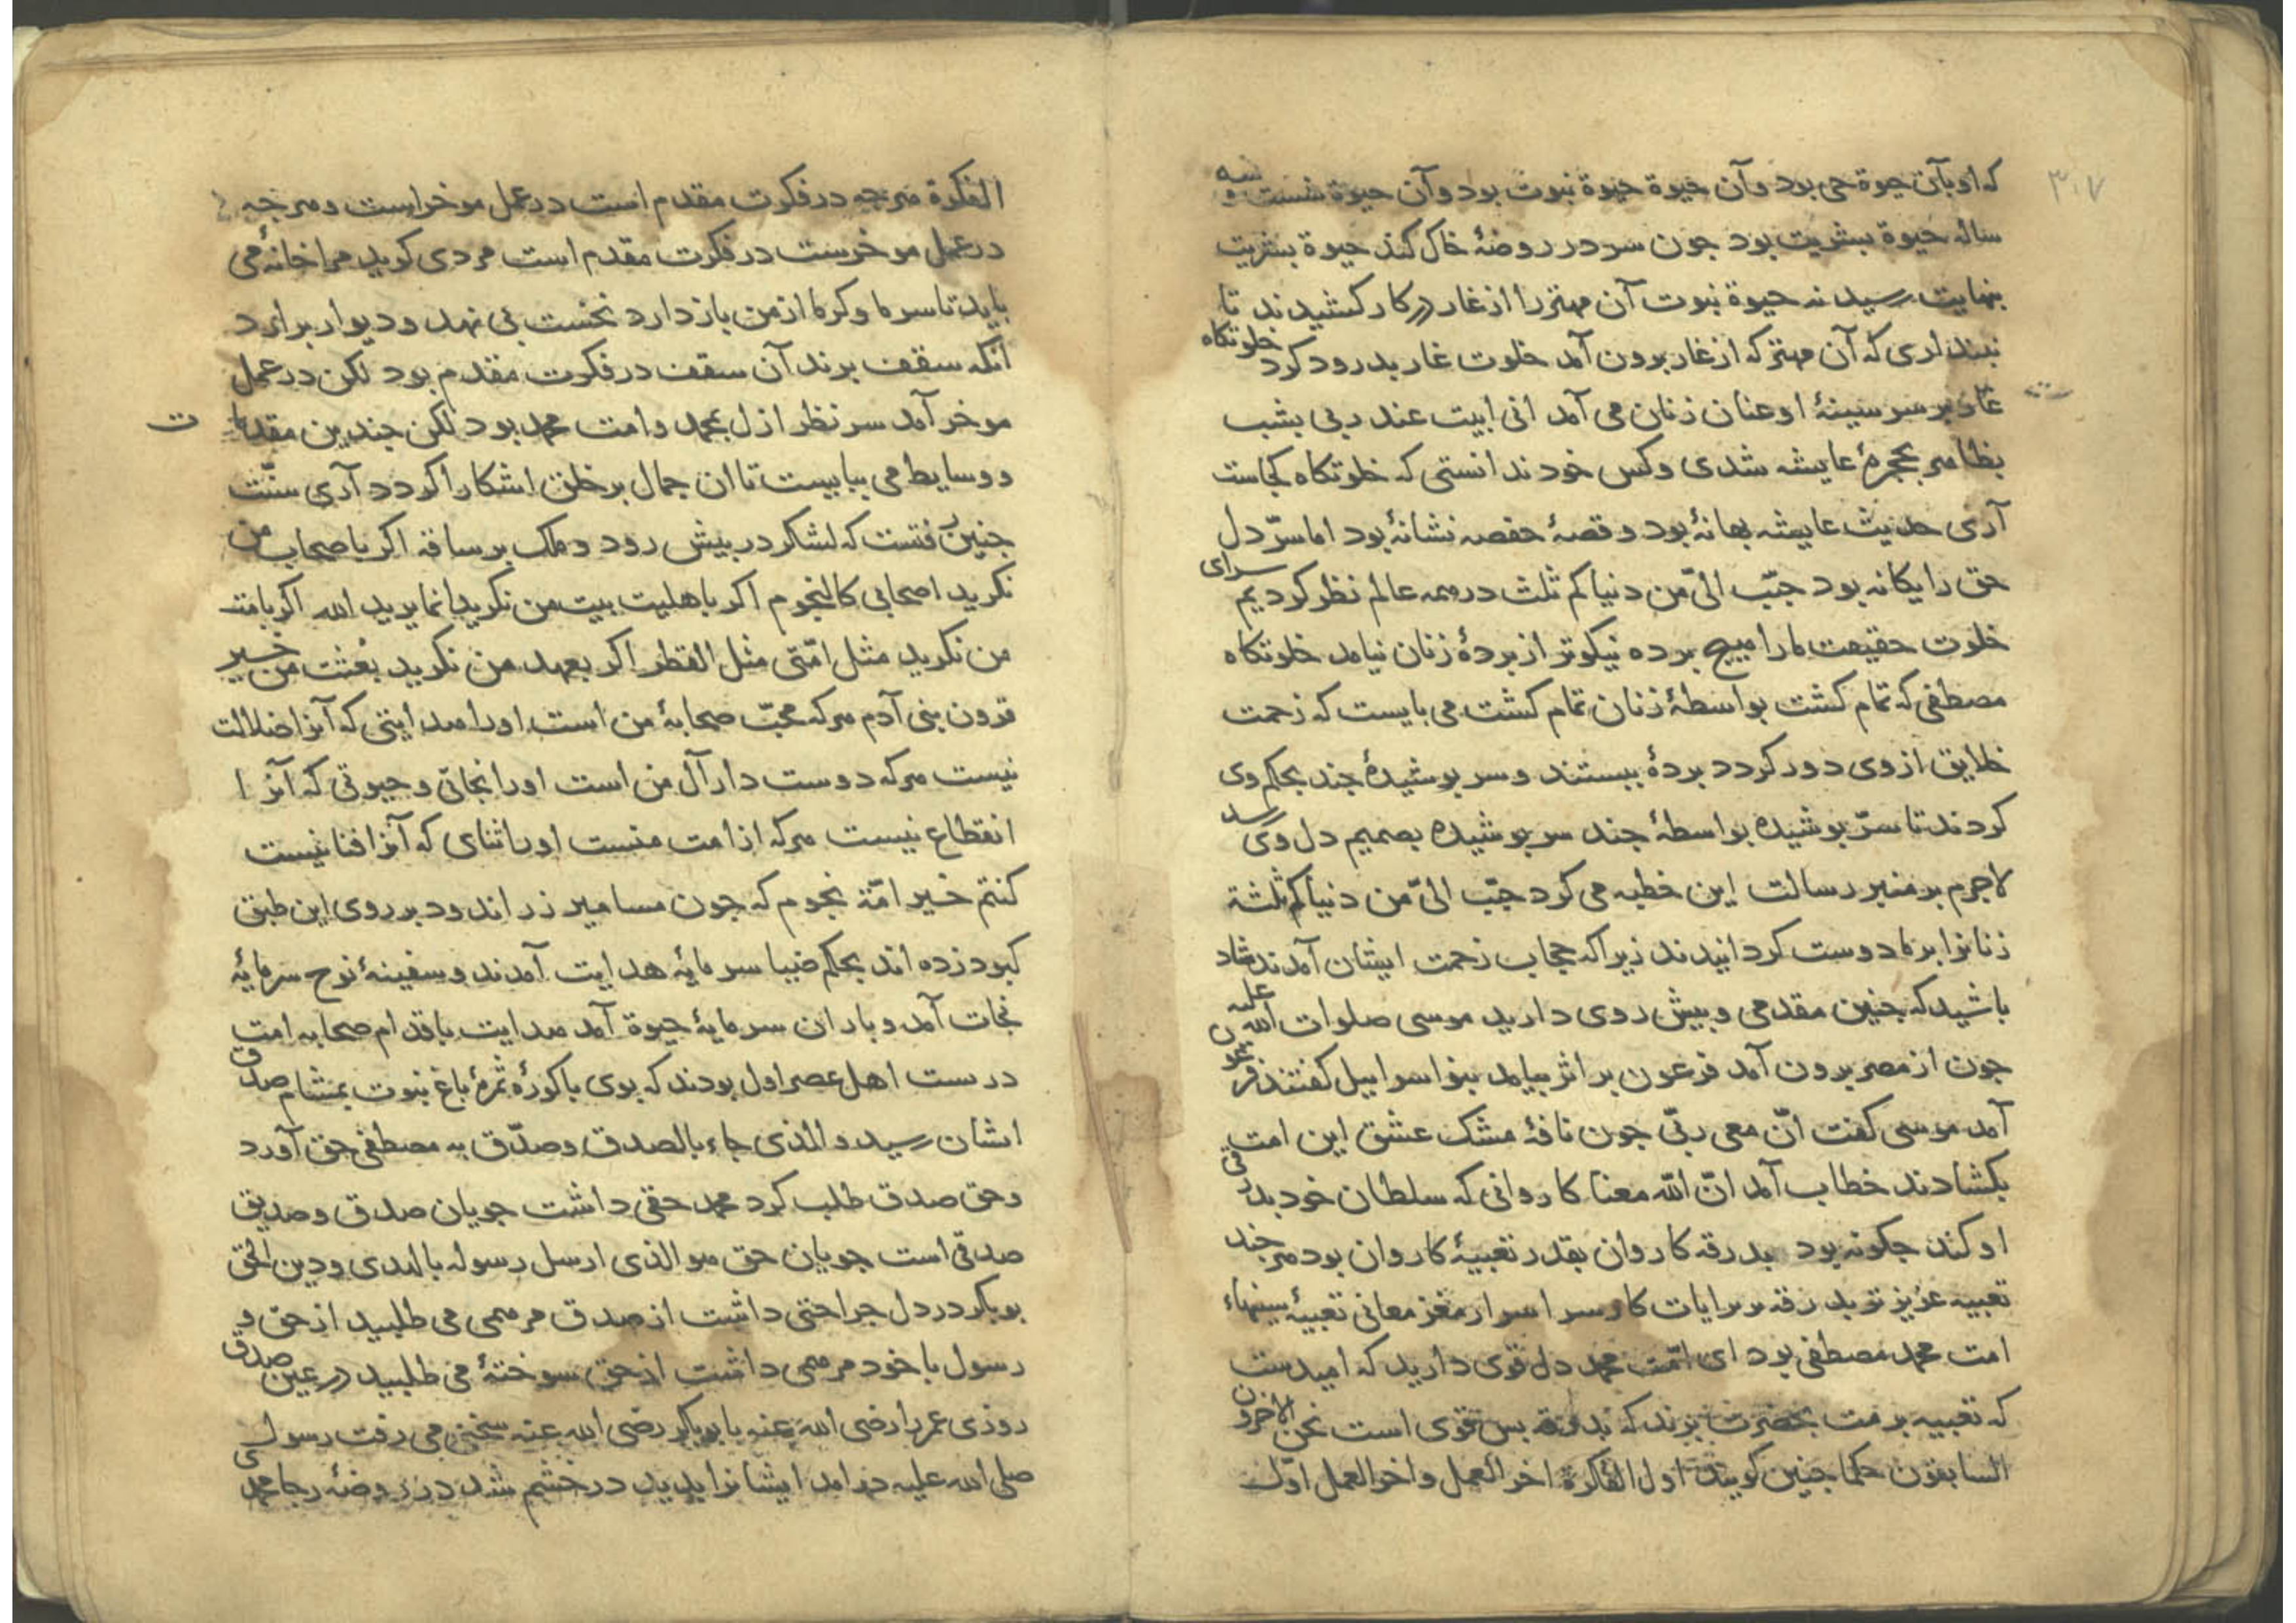 ۳۰۷
که او بآن حیوة حی بود و آن حیوة حیوة نبوت بود و آن حیوة شست و سه
ساله حیوة بشریت بود جون سر در روضهٔ خاک کند حیوة بشریت
بنهایت رسید نه حیوة نبوت آن مهتر را از غار در کار کشیدند تا
نبنداری که آن مهتر که از غار برون آمد خلوت غار بدرود کرد خلوتکاه
غار بر سر سینهٔ او عنان زنان می آمد انی ابیت عند ربی بشب
بظامر بحجرهٔ عایشه شدی و کس خود ندانستی که خلوتکاه کجاست
آری حدیث عایشه بهانهٔ بود و قصهٔ حفصه نشانهٔ بود اما سرّ دل
حق را یکانه بود حبّب الیّ من دنیاکم ثلث در سمه عالم نظر کردیم سرای
خلوت حقیقت ما را میج برده نیکوتر از بردهٔ زنان نیامد خلوتکاه
مصطفی که تمام کشت بواسطهٔ زنان تمام کشت می بایست که زحمت
خلایق از وی دور کردد بردهٔ ببستند و سر بوشیدهٔ جند بحکم وی
کردند تا سرّ بوشیده بواسطهٔ جند سر بوشیده بصمیم دل وی رسد
لاجرم بر منبر رسالت این خطبه می کرد حبّب الیّ من دنیاکم ثلثة
زنانرا بر ما دوست کردانیدند زیرا که حجاب زحمت ایشان آمدند شاد
باشید که جنین مقدمی و بیش روی دارید موسی صلوات الله علیه
جون از مصر برون آمد فرعون بر اثر بیامد بنو اسراییل کفتند فرعون
آمد موسی کفت انّ معی ربّی جون نافهٔ مشک عشق این امت
بکشادند خطاب آمد انّ الله معنا کاروانی که سلطان خود بدرقی
او کند جکونه بود بدرقه کاروان بقدر تعبیهٔ کاروان بود مرجند
تعبیه عزیزتر بدرقه بر برایات کار سر اسرار مغز معانی تعبیهٔ سینهاء
امت محمد مصطفی بود ای امّت محمد دل قوی دارید که امیدست
که تعبیه برمت بحضرت برند که بدرقه بس قوی است نحن الاخرون
السابقون حکما جنین کویند اول الفکرة اخر العمل و اخر العمل اوّل
الفکرة مرجه در فکرت مقدم است در عمل موخر است و مرجه
در عمل موخرست در فکرت مقدم است مردی کوید مرا خانهٔ می
باید تا سرما و کرما از من باز دارد نخست بی نهد و دیوار برارد
آنکه سقف برند آن سقف در فکرت مقدم بود لکن در عمل
موخر آمد سر نظر ازل بمحمد و امت محمد بود لکن جندین مقدمات
و وسایط می ببایست تا ان جمال بر خلق اشکارا کردد آری سنّت
جنین رفتست که لشکر در بیش رود و ملک بر ساقه اکر باصحاب من
نکرید اصحابی کالنجوم اکر باهلیت بیت من نکرید انما یرید الله اکر بامت
من نکرید مثل امّتی مثل القطر اکر بعهد من نکرید بعثت من خیر
قرون بنی آدم مرکه محبّ صحابهٔ من است او را مدایتی که آنرا ضلالت
نیست مرکه دوست دار آل من است او را نجاتی و حیوتی که آنرا
انقطاع نیست مرکه از امت منست او را ثنای که آنرا فنا نیست
کنتم خیر امّة نجوم که جون مسامیر زر اندود بر روی این طبق
کبود زده اند بحکم ضیا سرمایهٔ هدایت آمدند و سفینهٔ نوح سرمایهٔ
نجات آمد و باران سرمایهٔ حیوة آمد مدایت باقدام صحابه امت
درست اهل عصر اول بودند که بوی باکورهٔ ثمرهٔ باغ نبوت بمشام صدق
ایشان رسید و الذی جاء بالصدق و صدّق به مصطفی حق آورد
و حق صدق طلب کرد محمد حقی داشت جویان صدق و صدیق
صدقی است جویان حق مو الذی ارسل رسوله بالهدی و دین الحق
بوبکر در دل جراحتی داشت از صدق مرممی می طلبید از حق و
رسول با خود مرممی داشت از حق سوختهٔ می طلبید در عین صدق
روزی عمر را رضی الله عنه با بوبکر رضی الله عنه سخنی می رفت رسول
صلی الله علیه درامد ایشانرا بدید در خشم شد در روضهٔ رجا محمدی